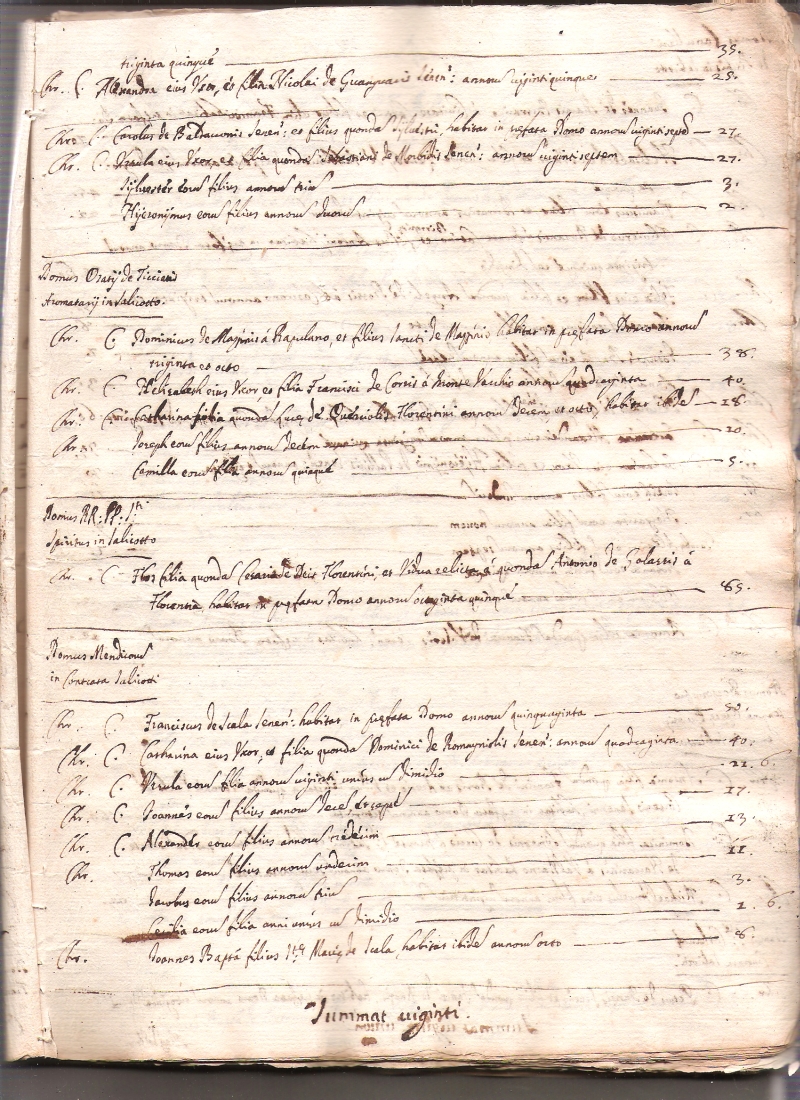 triginta quinque 35.
Chr. C. Alexandra eius Uxor, et filia Nicolai de Senen: annorum vigintiquinque 25.
Chr. C. Carolus de Senen: et filius quondam Sylvestri, habitat in prefata Domo annorum viginti septem 27.
Chr. C. Ursula eius Uxor, et filia quondam Sebastiani de Morbidis Senen: annorum vigintiseptem 27.
Sylvester eorum filius annorum trium 3.
Hyeronymus eorum filius annorum duorum 2.
Domus Oratij de Ticciatis
Aromatarij in Salicotto.
Chr. C. Dominicus de à Rapulano, et filius Sancti de habitat in prefata Domo annorum
triginta et octo 38.
Chr. C. Helisabeth eius Uxor et filia Francisci de à Monte annorum quadraginta 40.
Chr. C. Catharina filia quondam de Florentini annorum decem et octo, habitat ibidem 18.
Chr. Joseph eorum filius annorum decem 10.
Camilla eorum filia annorum quinque 5.
Domus RR: PP: S.ti
Spiritus in Salicotto
Chr. C. Flos filia quondam Florentini, et Vidua relicta à quondam Antonio de Galassis à
Florentia habitat in prefata Domo annorum octuaginta quinque 85.
Domus Mendicorum
in Contrata Salicotti
Chr. C. Franciscus de Scala Senen: habitat in prefata Domo annorum quinquaginta 50.
Chr. C. Catharina eius Uxor, et filia quondam Dominici de Romagnolis Senen: annorum quadraginta 40.
Chr. C. Ursula eorum filia annorum viginti unius cum dimidio 21. 6.
Chr. C. Joannes eorum filius annorum decem et septem 17.
Chr. C. Alexander eorum filius annorum tredecim 13.
Chr. Thomas eorum filius annorum undecim 11
Jacobus eorum filius annorum trium 3.
Cecilia eorum filia anni unius cum dimidio 1. 6.
Chr. Joannes Bapta filius de Scala, habitat ibidem annorum octo 8.
Summat viginti.